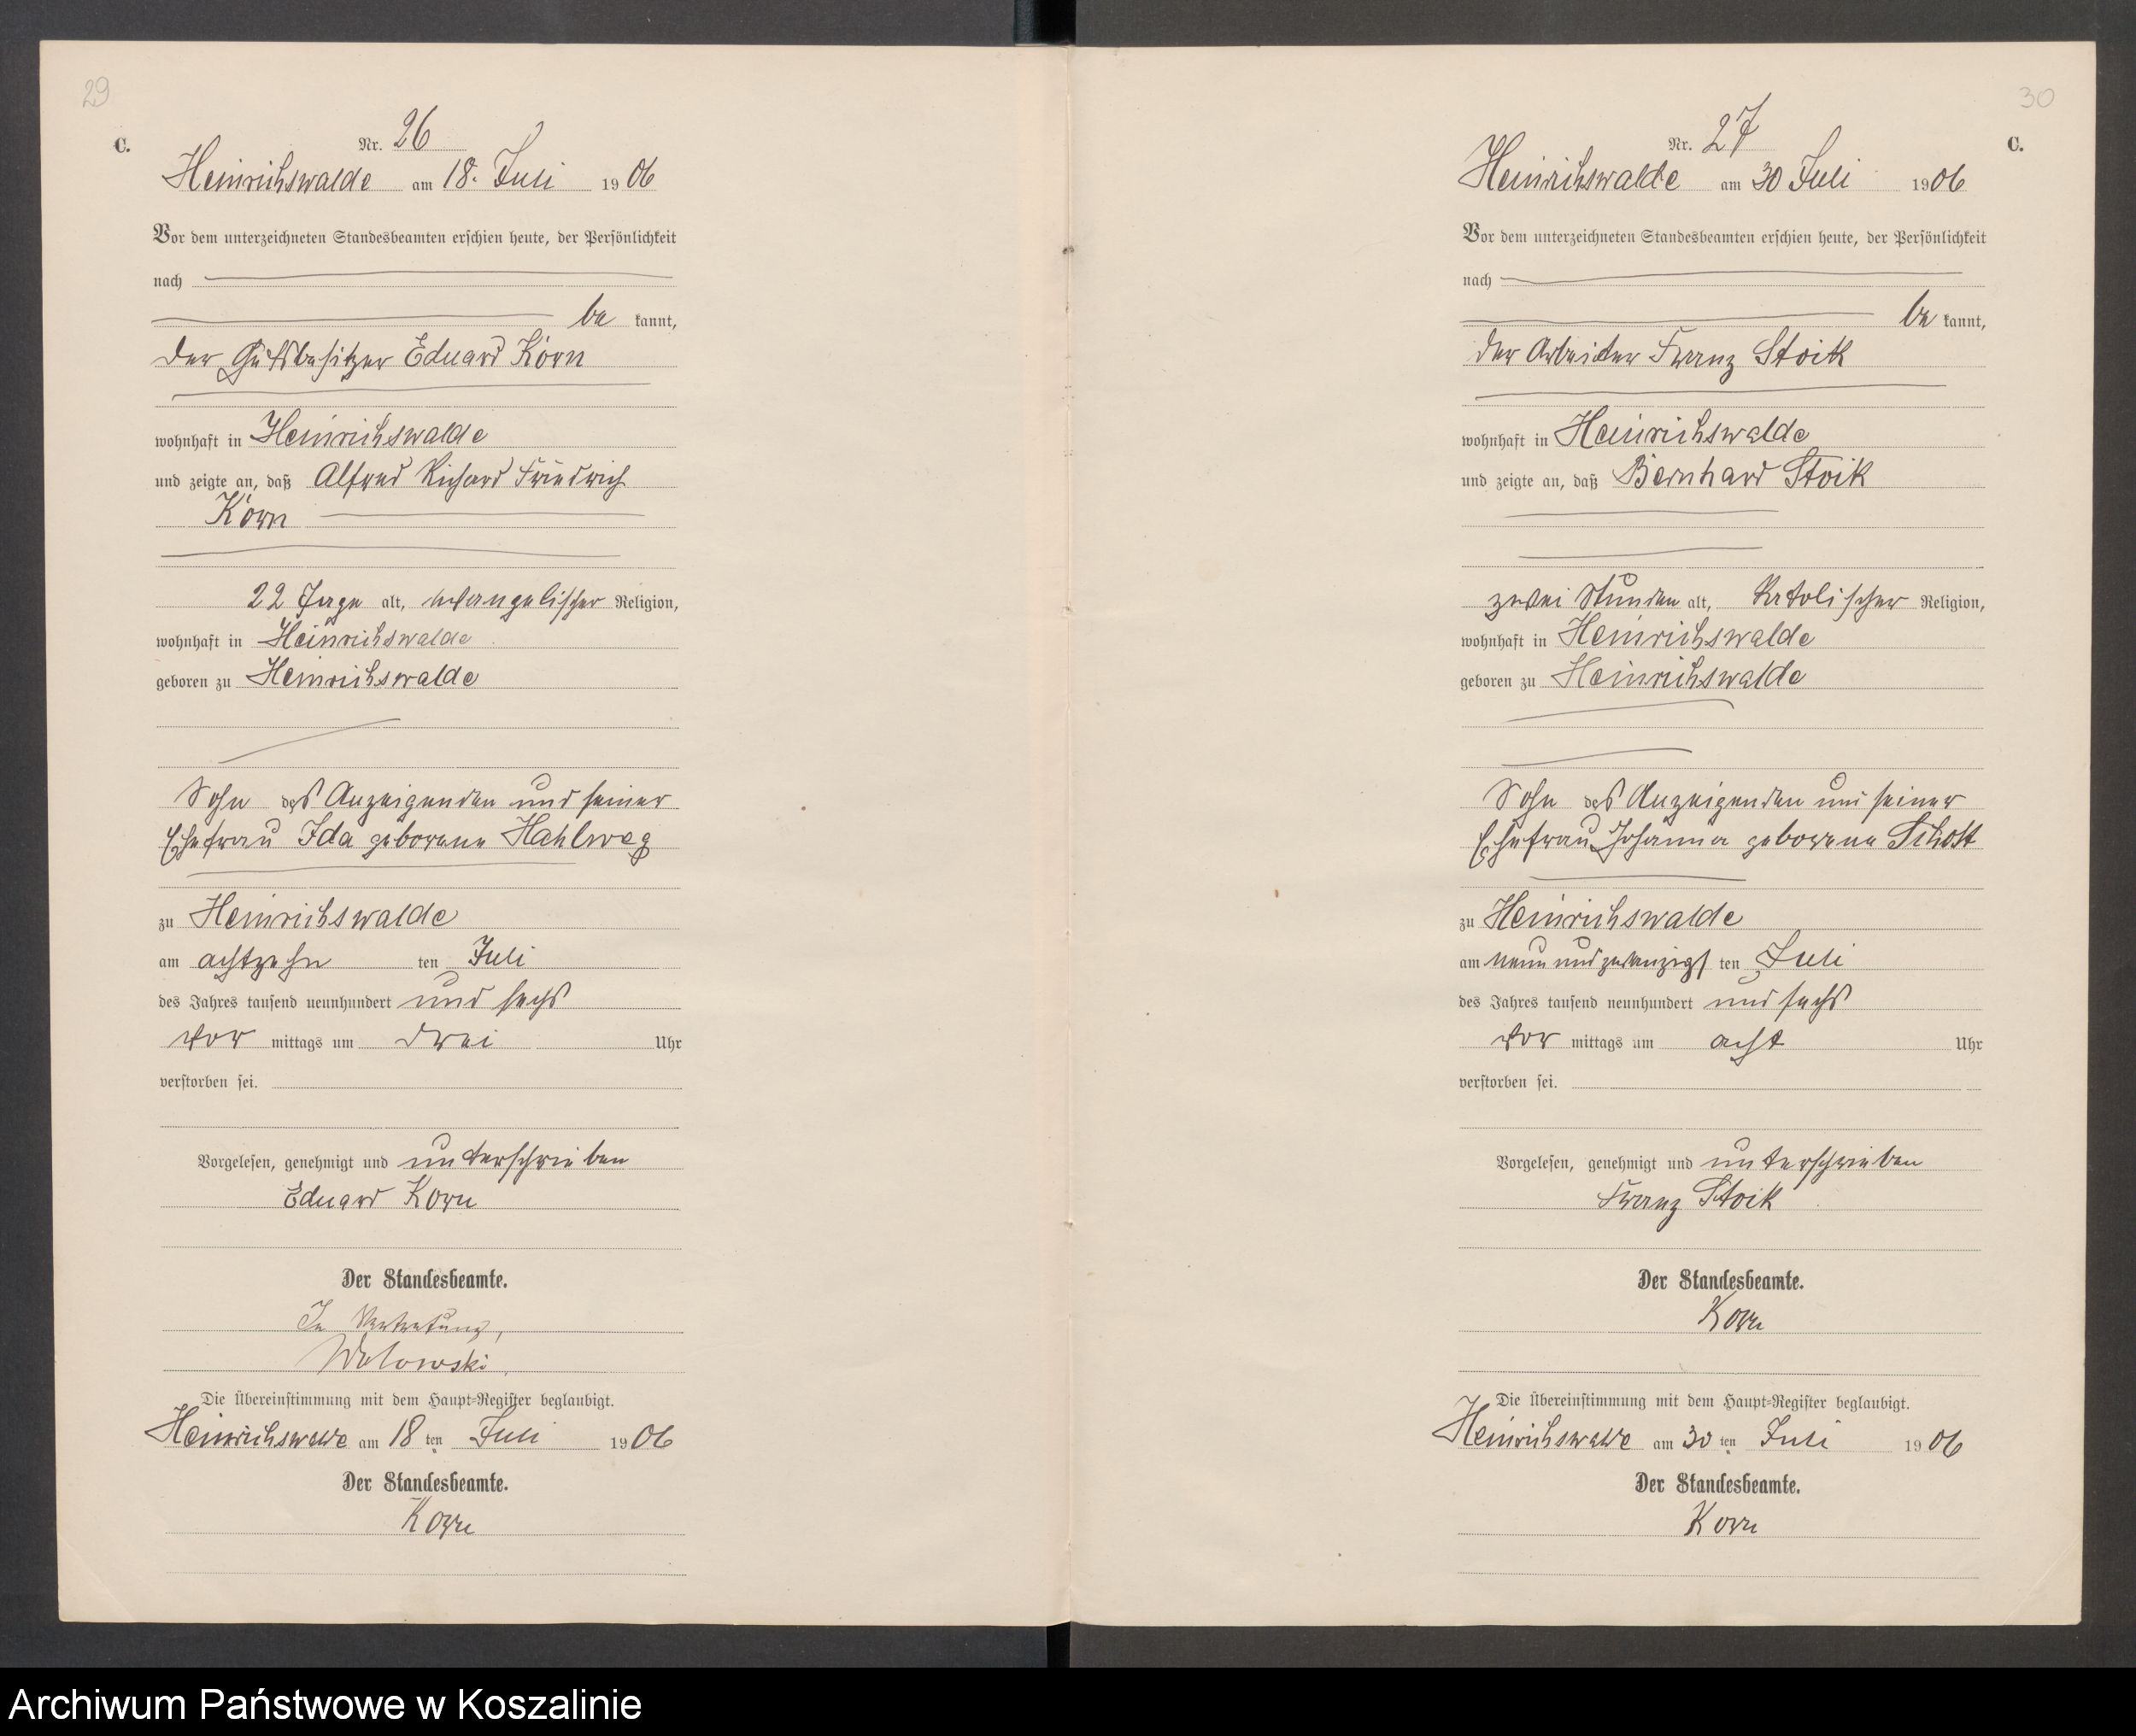 29
C.
Nr. 26
Heinrichswalde am 18. Juli 1906
Vor dem unterzeichneten Standesbeamten erschien heute, der Persönlichkeit
nach
be kannt,
der Gutsbesitzer Eduard Korn
wohnhaft in Heinrichswalde
und zeigte an, daß Alfred Richard Friedrich
Korn
22 Tage alt, evangelischer Religion,
wohnhaft in Heinrichswalde
geboren zu Heinrichswalde
Sohn des Anzeigenden und seiner
Ehefrau Ida geborene Hahlweg
zu Heinrichswalde
am achtzehn ten Juli
des Jahres tausend neunhundert und sechs
vor mittags um drei Uhr
verstorben sei.
Vorgelesen, genehmigt und unterschrieben
Eduard Korn
Der Standesbeamte.
In Vertretung,
Die Übereinstimmung mit dem Haupt-Register beglaubigt.
Heinrichswalde am 18 ten Juli 1906
Der Standesbeamte.
Korn
30
C.
Nr. 27
Heinrichswalde am 30 Juli 1906
Vor dem unterzeichneten Standesbeamten erschien heute, der Persönlichkeit
nach
be kannt,
der Arbeiter Franz Stoik
wohnhaft in Heinrichswalde
und zeigte an, daß Bernhard Stoik
zwei Stunden alt, Katolischer Religion,
wohnhaft in Heinrichswalde
geboren zu Heinrichswalde
Sohn des Anzeigenden und seiner
Ehefrau Johanna geborene Schott
zu Heinrichswalde
am neun und zwanzigs ten Juli
des Jahres tausend neunhundert und sechs
vor mittags um acht Uhr
verstorben sei.
Vorgelesen, genehmigt und unterschrieben
Franz Stoik
Der Standesbeamte.
Korn
Die Übereinstimmung mit dem Haupt-Register beglaubigt.
Heinrichswalde am 30 ten Juli 1906
Der Standesbeamte.
Korn
Archiwum Państwowe w Koszalinie